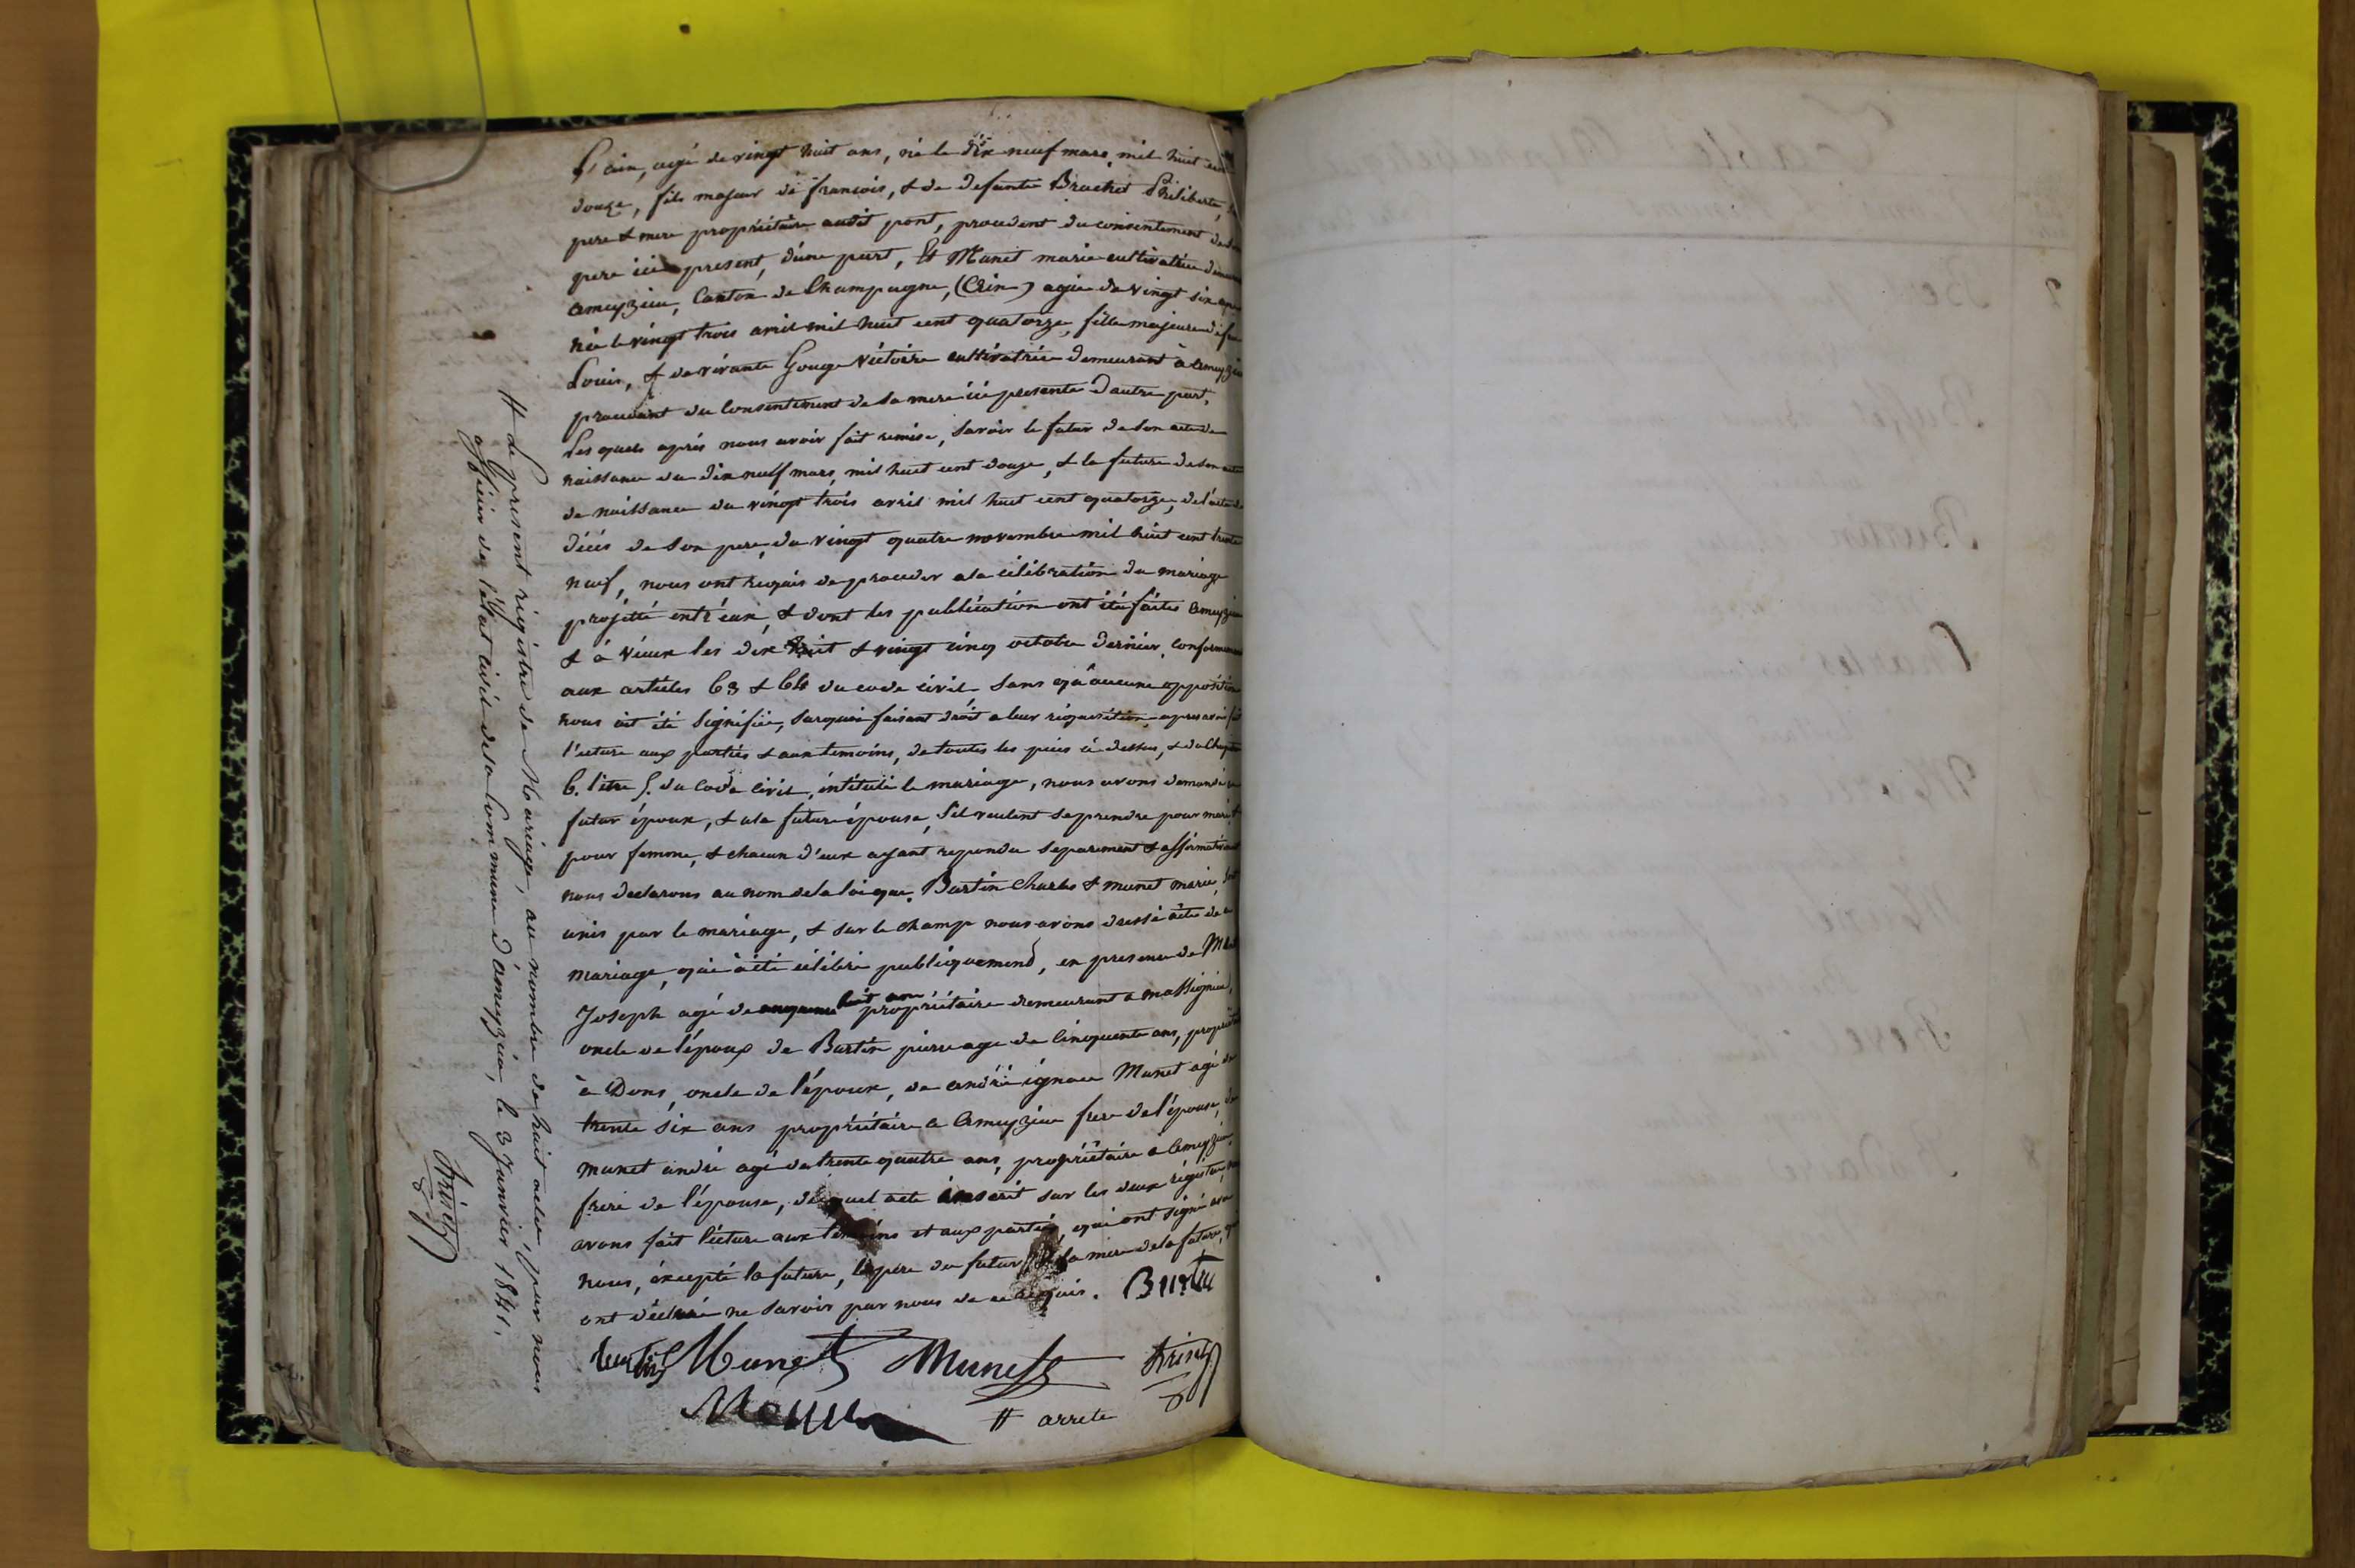 l'ain, agé de vingt huit ans, né le dix neuf mars mil huit cent
douze, fils majeur de françois, & de defunte Brachet Philiberte,
pere & mere propriétaire audit pont, procedent du consentement de son
pere ici present, d'une part, Et Munet marie cultivatrice
ameyzieu, Canton de Champagne, (Ain) agée de vingt six ans
née le vingt trois avril mil huit cent quatorze, fille majeure de feu
Louis, & de vivante Gouge Victoire cultivatrice demeurant à ameyzieu
procedant du Consentement de sa mere ici presente D'autre part,
Les quels après nous avoir fait remise, Savoir le futur de son acte de
naissance du dix neuf mars, mil huit cent douze, & la future de son acte
de naissance du vingt trois avril mil huit cent quatorze, de l'acte de
décès de son pere, du vingt quatre novembre mil huit cent trente
neuf, nous ont requis de proceder a la célébration du mariage
projetté entr'eux, & dont les publication ont été faites ameyzieu
& à vieux les dix huit & vingt cinq octobre dernier, conformement
aux articles 63 & 64 du code civil, Sans qu'aucune opposition
nous ait été Signifiée, Surquoi faisant droit a leur réquisition, apres avoir fait
l'ecture aux parties & aux temoins, de toutes les pieces ci dessus, & du Chapitre
6. titre 5. du Code civil, intitulé le mariage, nous avons demandé au
futur époux, & a la future épouse, S'il veulent se prendre pour mari &
pour femme, & chacun d'eux ayant repondu separement & affirmativement
nous declarons au nom de la loi que, Burtin Charles & munet marie, sont
unis par le mariage, & sur le champ nous avons dressé acte de ce
mariage, qui a été célébré publiquement, en presence de
Joseph agé de huit ans propriétaire demeurant a massignieu,
oncle de l'époux de Burtin pierre age de Cinquante ans, propriétaire
à Dons, oncle de l'époux, de andré ignace Munet agé de
trente six ans propriétaire a Ameyzieu frere de l'épouse, de
munet andré agé de trente quatre ans, propriétaire a ameyzieu,
frere de l'épouse, duquel acte inscrit sur les deux régistres,
avons fait l'ecture aux temoins et aux parties, qui ont signé avec
nous, excepté la future, le pere du futur, & la mere de la future, qui
ont déclaré ne savoir par nous de ce requis. Burtin
burtin Munet Munet Trinety
# arrete
# Le present régistre de Mariage, au nombre de huit actes, par nous
officier de l'état civil de la Commune d'ameyzieu, le 3 Janvier 1841.